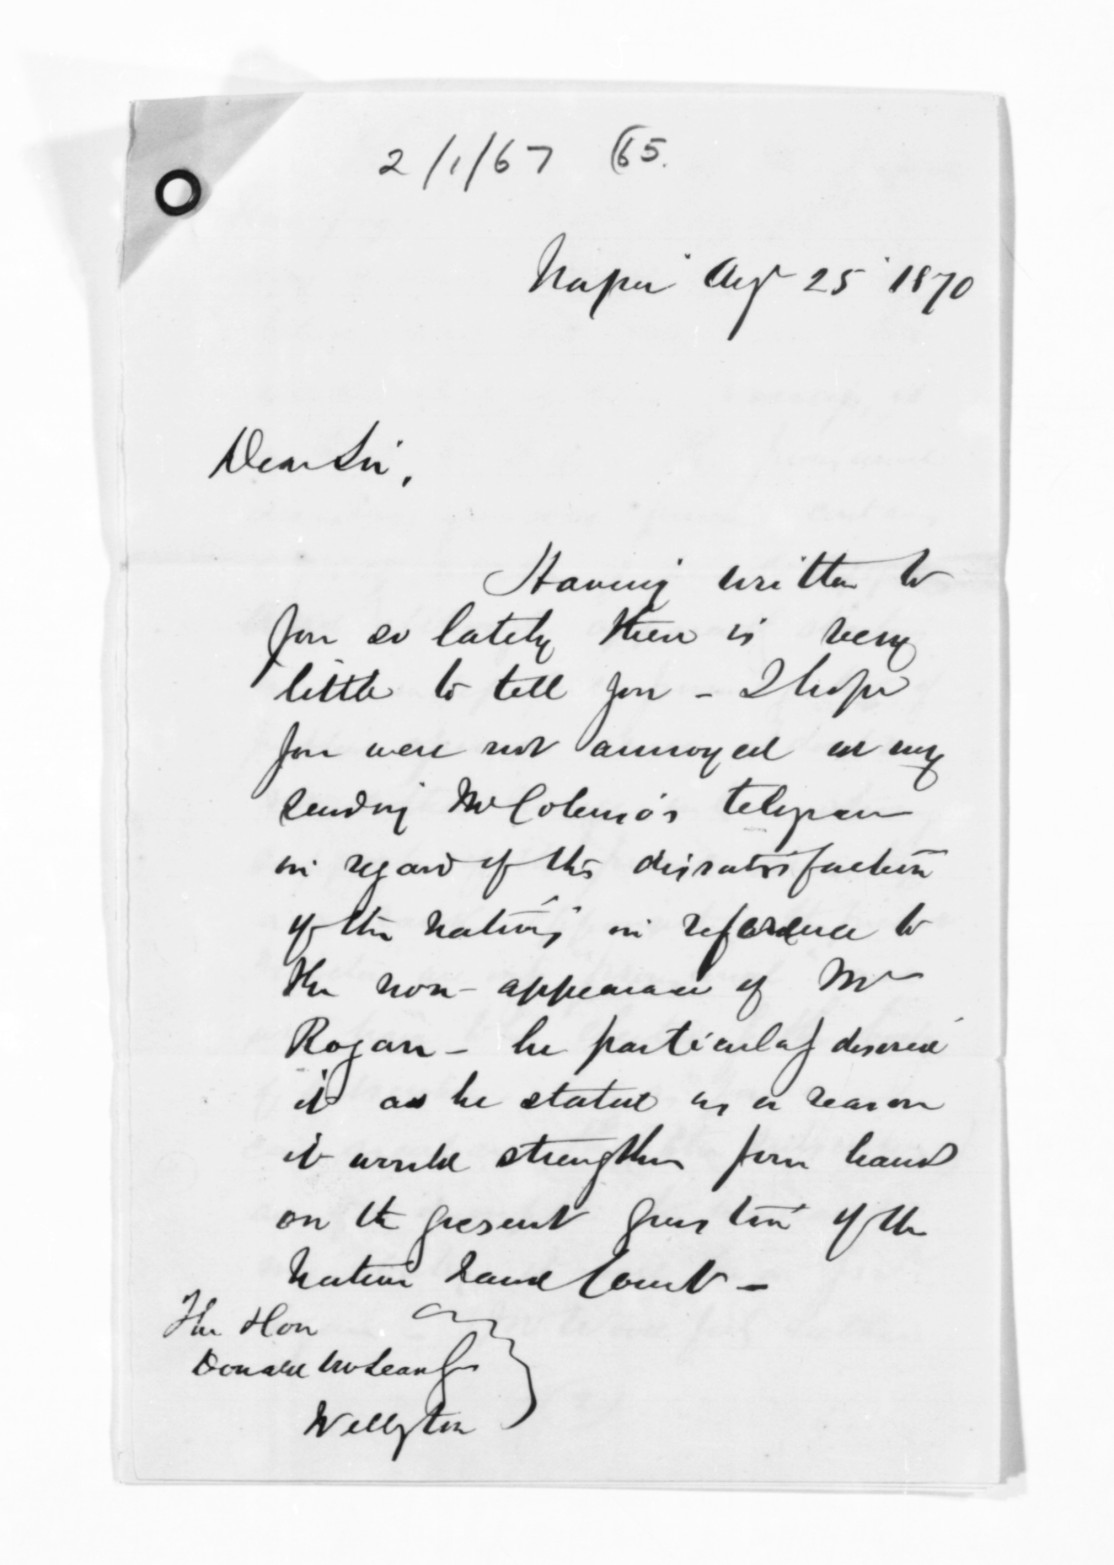 2/1/67 65.
Napier Augt 25 1870
Dear Sir,
Having written to
you so lately there is very
little to tell you - I hope
you were not annoyed at my
sending Mr Colenso's telegram
in regard of the dissatisfaction
of the natives in reference to
the non-appearance of Mr
Rogan - he particularly desired
it as he stated as a reason
it would strengthen your hand
on the present question of the
Native Land Court -
The Hon
Donald McLean
Wellington